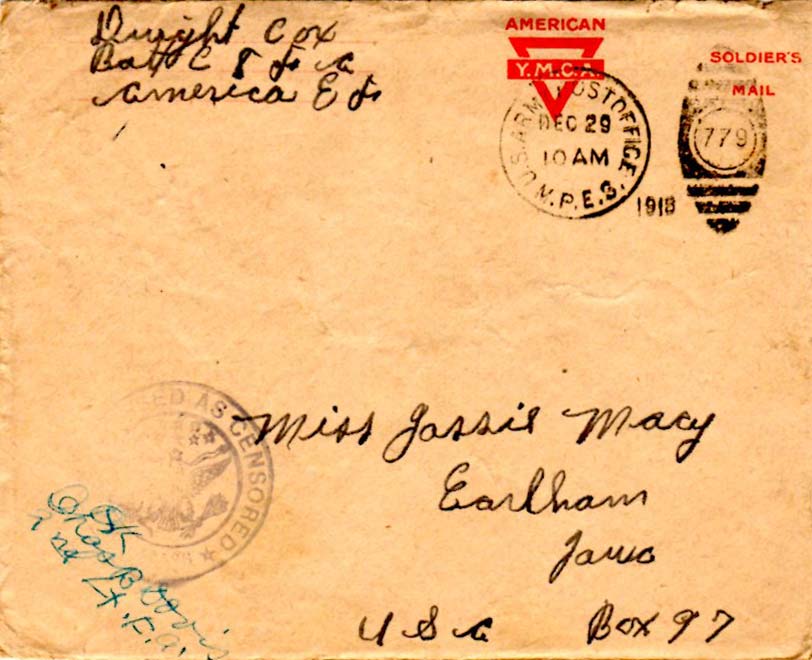 Dwight Cox
Batt C 8 F A
America E F
AMERICAN
Y.M.C.A.
SOLDIER'S
MAIL
U.S. ARMY POST OFFICE
DEC 29
10 AM
M.P.E.S.
1918
779
AS CENSORED
Miss Jassie Macy
Earlham
Iowa
U S A Box 97
OK
Chas B Davis
2nd Lt. F.A.